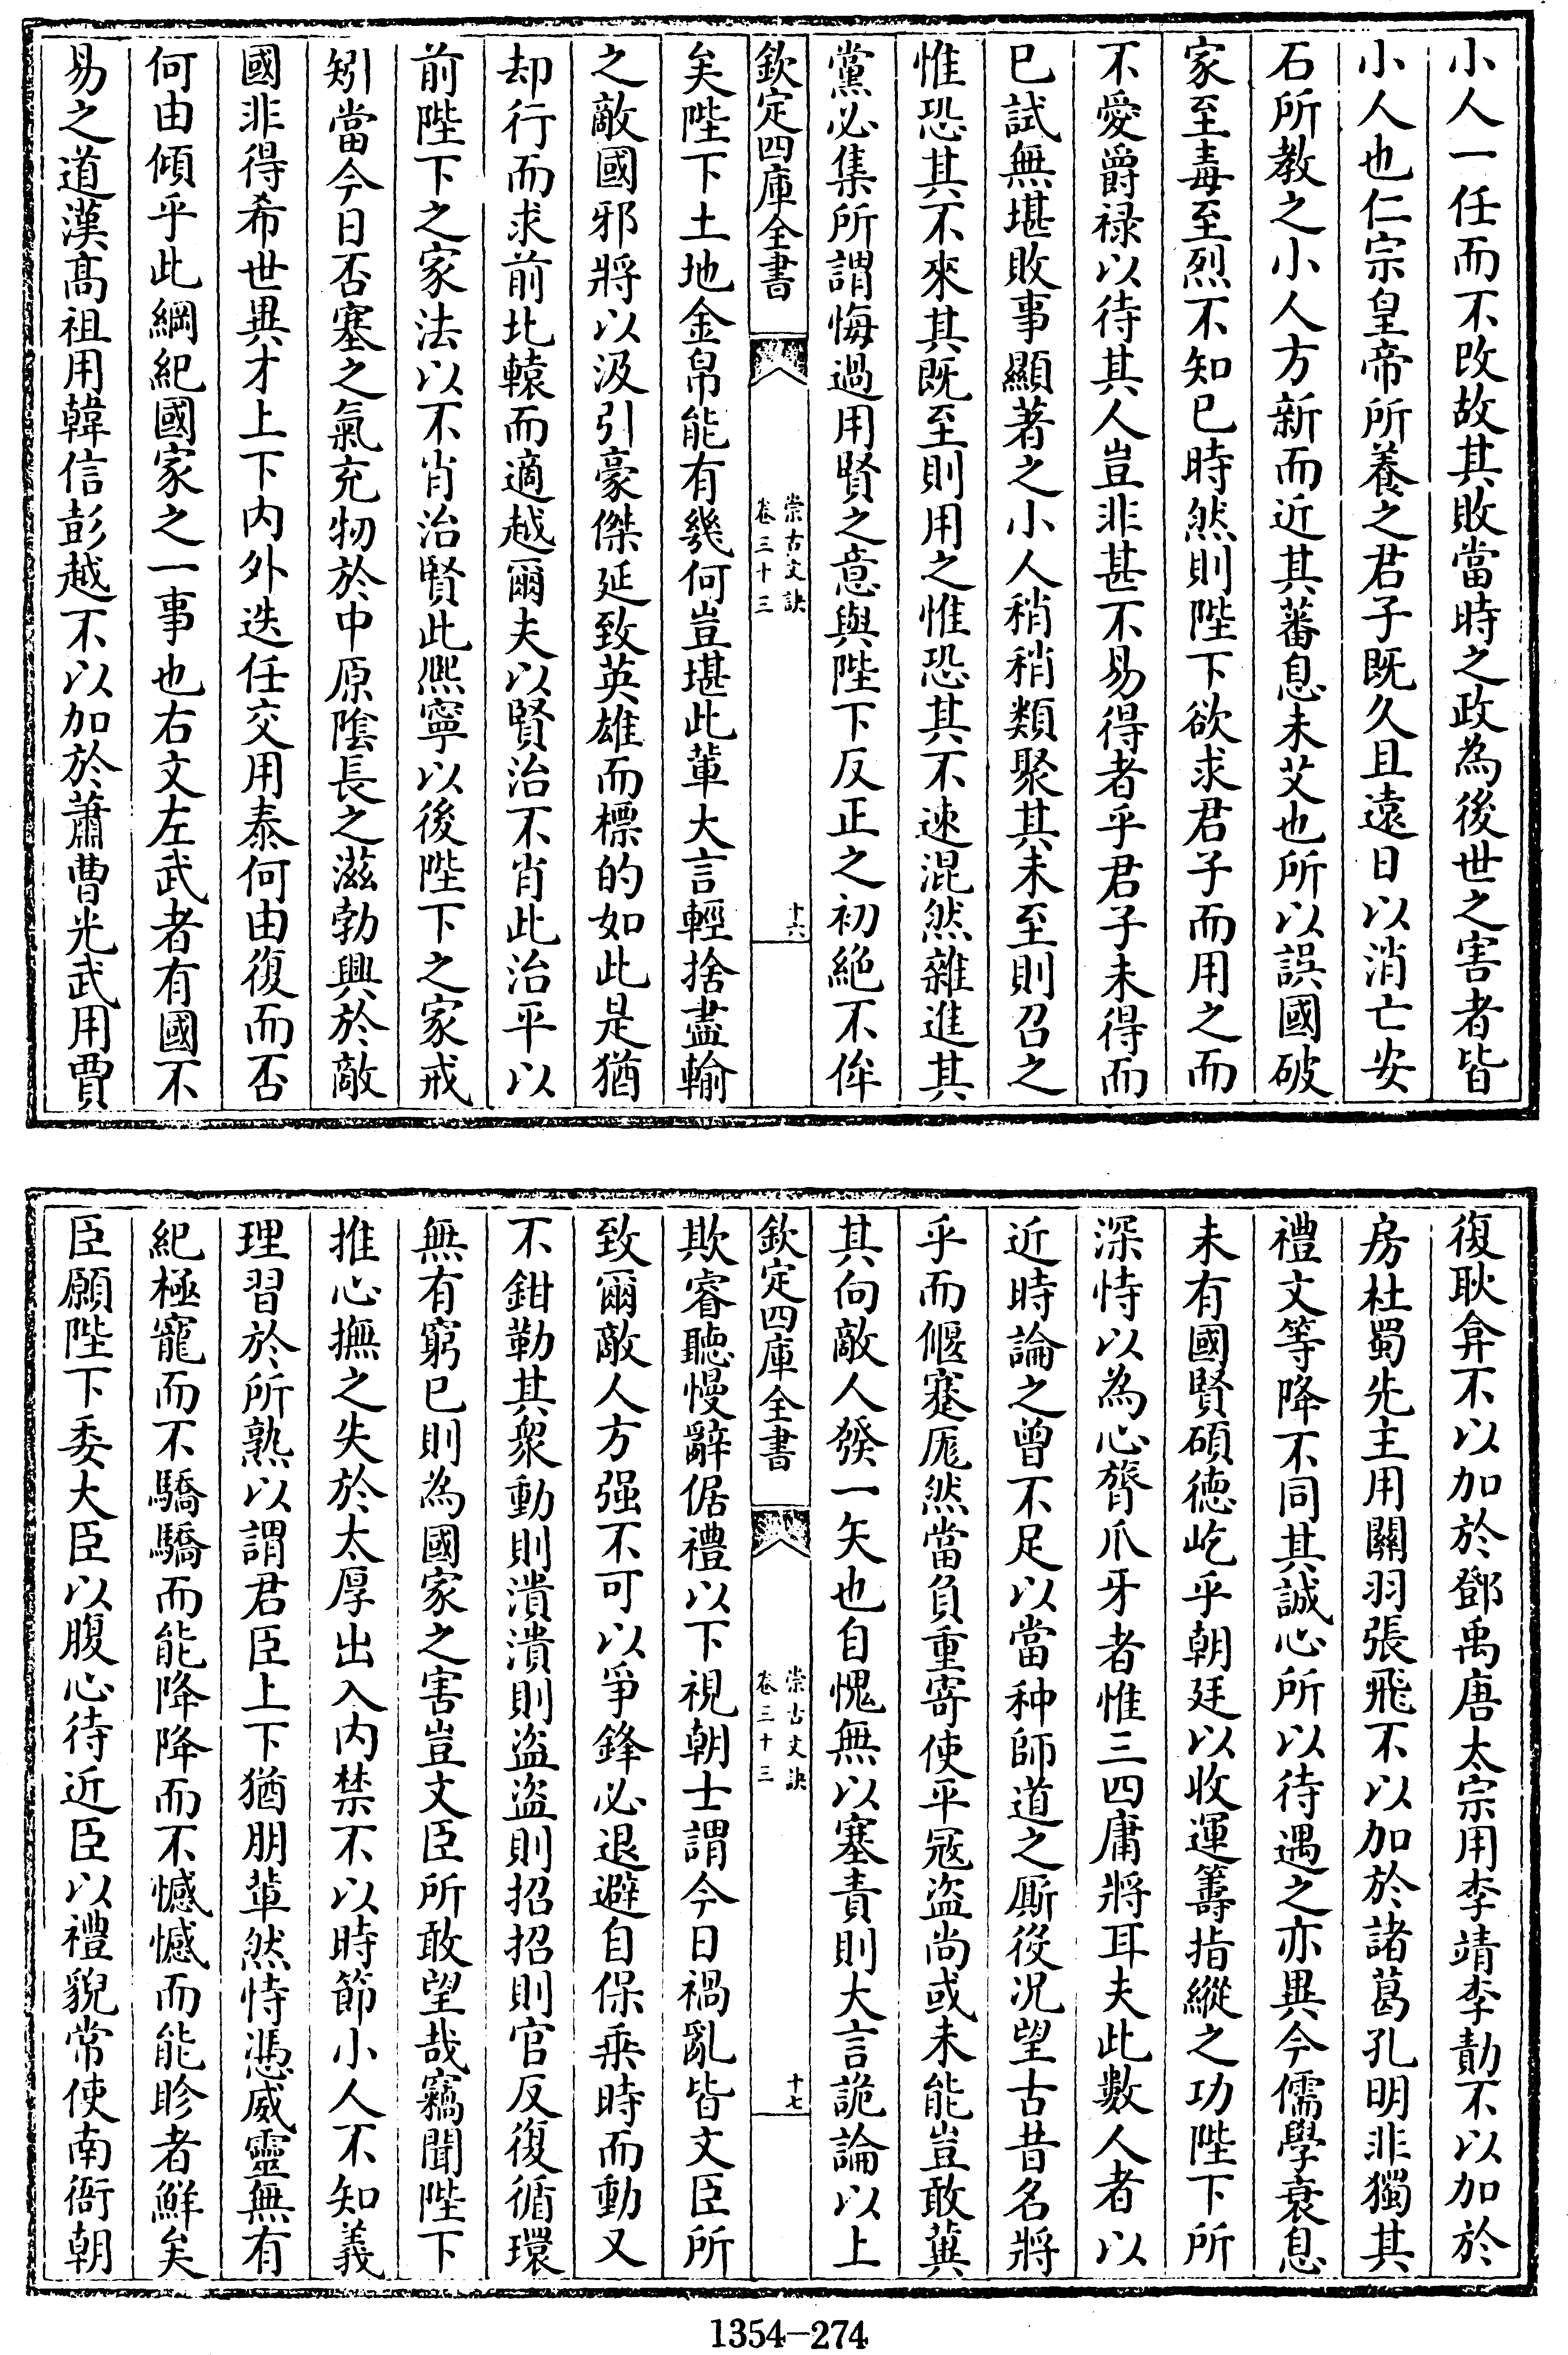 小人一任而不改故其敗當時之政為後世之害者皆
小人也仁宗皇帝所養之君子既久且遠日以消亡安
石所教之小人方新而近其蕃息未艾也所以誤國破
家至毒至烈不知已時然則陛下欲求君子而用之而
不愛爵禄以待其人豈非甚不易得者乎君子未得而
已試無堪敗事顯著之小人稍稍類聚其未至則召之
惟恐其不來其既至則用之惟恐其不速混然雜進其
黨必集所謂悔過用賢之意與陛下反正之初絶不侔
欽定四庫全書
崇古文訣
卷三十三
十六
矣陛下土地金帛能有幾何豈堪此軰大言輕捨盡輸
之敵國邪將以汲引豪傑延致英雄而標的如此是猶
却行而求前北轅而適越爾夫以賢治不肖此治平以
前陛下之家法以不肖治賢此熈寧以後陛下之家戒
矧當今日否塞之氣充牣於中原隂長之滋勃興於敵
國非得希世異才上下内外迭任交用泰何由復而否
何由傾乎此綱紀國家之一事也右文左武者有國不
易之道漢髙祖用韓信彭越不以加於蕭曹光武用賈
復耿弇不以加於鄧禹唐太宗用李靖李勣不以加於
房杜蜀先主用關羽張飛不以加於諸葛孔明非獨其
禮文等降不同其誠心所以待遇之亦異今儒學衰息
未有國賢碩徳屹乎朝廷以收運籌指縱之功陛下所
深恃以為心膂爪牙者惟三四庸將耳夫此數人者以
近時論之曾不足以當种師道之厮役况望古昔名將
乎而偃蹇厖然當負重寄使平冦盗尚或未能豈敢冀
其向敵人發一矢也自愧無以塞責則大言詭論以上
欽定四庫全書
崇古文訣
卷三十三
十七
欺睿聽慢辭倨禮以下視朝士謂今日禍亂皆文臣所
致爾敵人方强不可以爭鋒必退避自保乗時而動又
不鉗勒其衆動則潰潰則盗盗則招招則官反復循環
無有窮已則為國家之害豈文臣所敢望哉竊聞陛下
推心撫之失於太厚出入内禁不以時節小人不知義
理習於所熟以謂君臣上下猶朋軰然恃憑威靈無有
紀極寵而不驕驕而能降降而不憾憾而能眕者鮮矣
臣願陛下委大臣以腹心待近臣以禮貌常使南衙朝
1354—274